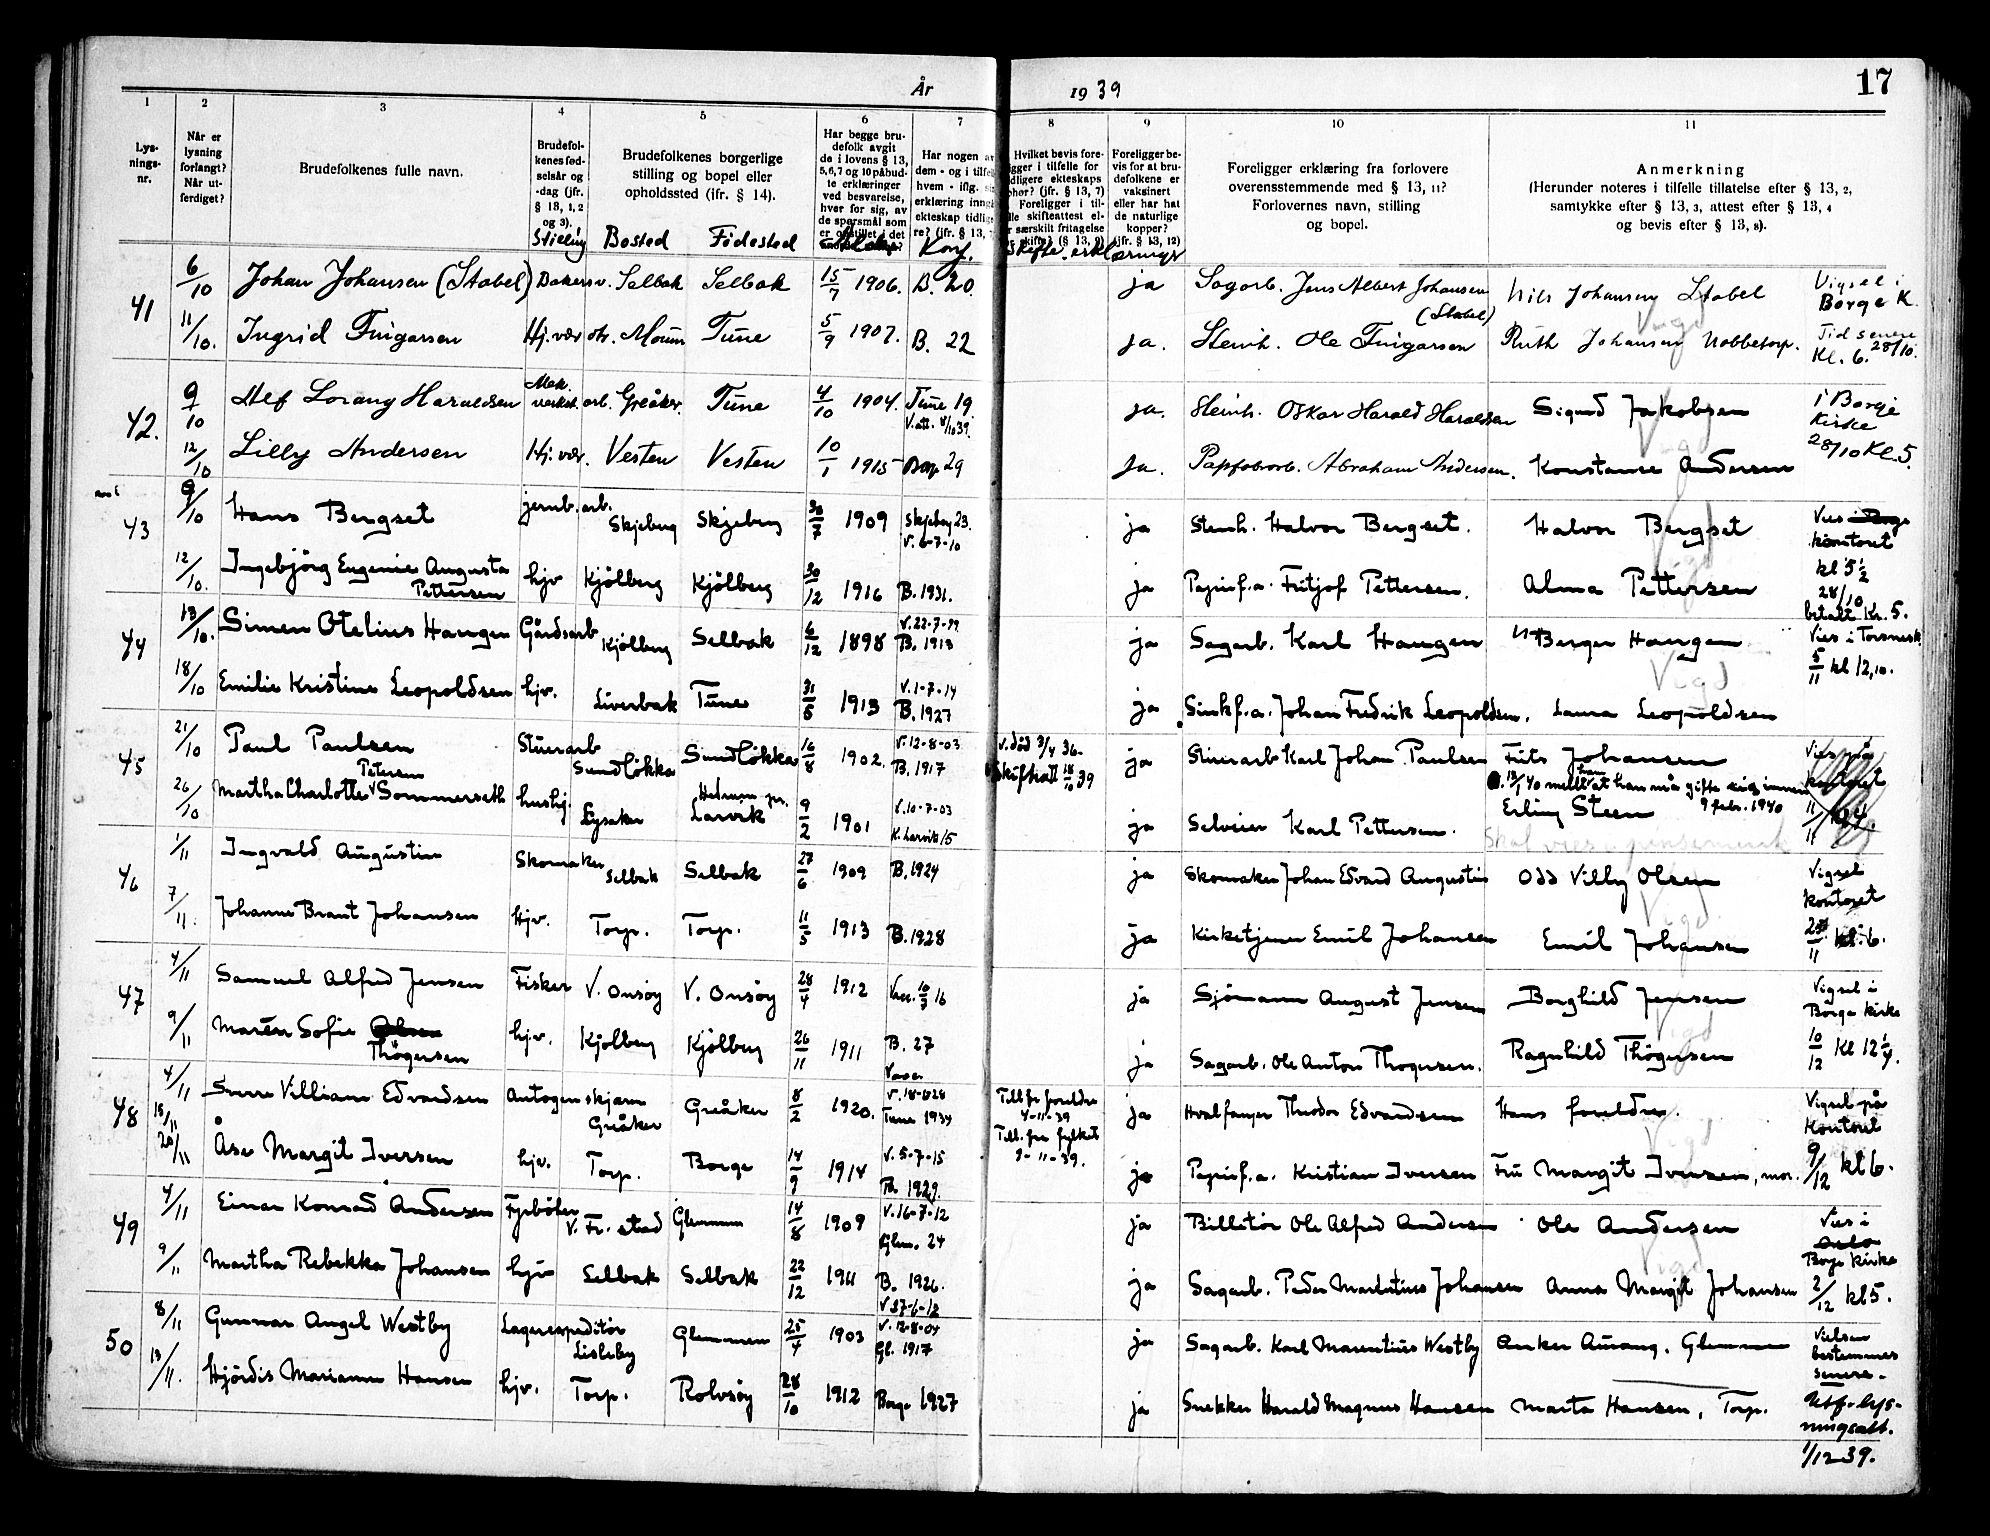 År 1939
17
1 2 3 4 5 6 7 8 9 10 11
Lys-
nings-
nr.
Når er
lysning
forlangt?
Når ut-
ferdiget?
Brudefolkenes fulle navn.
Brudefol-
kenes fød-
selsår og
-dag (jfr.
§ 13, 1, 2
og 3).
Stilling
Brudefolkenes borgerlige
stilling og bopel eller
opholdssted (ifr. § 14).
Bosted Fødested
Har begge bru-
defolk avgit
de i lovens § 13,
5,6,7 og 10 påbud-
te erklæringer
ved besvarelse,
hver for sig, av
de spørsmål som
er opstillet i det
Har nogen av
dem - og i tilfelle
hvem - iflg. sin
erklæring inngått
ekteskap tidlige-
re? (jfr. § 13, 7
Konf.
Hvilket bevis fore-
ligger i tilfelle for
tidligere ekteskaps
ophør? (jfr. § 13, 7)
Foreligger i til-
felle skifteattest el-
ler særskilt fritagelse
skifte? (§ 13, 9)
Skifte erklærings
Foreligger be-
vis for at bru-
defolkene er
vaksinert
eller har hat
de naturlige
kopper?
(jfr. § 13, 12)
Foreligger erklæring fra forlovere
overensstemmende med § 13, 11?
Forlovernes navn, stilling
og bopel.
Anmerkning
(Herunder noteres i tilfelle tillatelse efter § 13, 2,
samtykke efter § 13, 3, attest efter § 13, 4
og bevis efter § 13, 8).
41 6/10 Johan Johansen (Stabel) Bakersv. Selbak Selbak 15/7 1906. B. 20. ja Sagarb. Jens Albert Johansen (Stabel) Nils Johansen Stabel Vigsel i Borge K.
11/10. Ingrid Fingarsen Hj.vær otr. Moum Tune 5/9 1907. B. 22 ja. Stenh. Ole Fingarsen Ruth Johansen Nobbetorp. Tid senere 28/10. Kl. 6.
Vigd
42. 9/10 Alf Lorang Haraldsen Mek. verkst. arb. Greåker Tune 4/10 1904. Tune 19. ja. Stenh. Oskar Harald Haraldsen Sigurd Jakobsen i Borge Kirke
12/10 Lilly Andersen Hj. vær. Vesten Vesten 10/1 1915 29 ja. Papfabarb. Abraham Andersen. Konstanse Andersen 28/10 Kl. 5.
Vigd
43 9/10 Hans Bergset jernb. arb. Skjeberg Skjeberg 30/7 1909 Skjeberg 23. V. 6-7-10 ja Stenh. Halvor Bergset. Halvor Bergset Vies i Borge kontoret
12/10. Ingebjörg Eugenie Augusta Pettersen hjv Kjölberg Kjölberg 30/12 1916 B. 1931. ja Papirf.a. Fritjof Pettersen. Alma Pettersen kl 5½ 28/10 betalt Kr. 5.
Vigd
44 13/10. Simen Otelius Haugen Gårdsarb Kjölberg Selbak 6/12 1898 V. 22-7-99 B. 1913 ja Sagarb. Karl Haugen Berger Haugen Vies i Torsnesk.
18/10 Emilie Kristine Leopoldsen hjv. Liverbak Tune 31/5 1913 V. 1-7-14 B. 1927 ja Sinkf.a. Johan Fredrik Leopoldsen. Laura Leopoldsen 5/11 kl 12,10.
Vigd
45 21/10 Paul Paulsen Stuerarb Sundlökka Sundlökka 16/8 1902. V. 12-8-03 B. 1917 v. död 3/4 36- Skifteatt 18/10 39 ja Stuerarb Karl Johan Paulsen Frits Johansen Vies på kontoret
13/1 40 meldt at han må gifte sig innen 9 febr. 1940
26/10 Martha Charlotte Petersen Sommerseth hushj. Lysaker Hedrum pr. Larvik 9/2 1901 V. 10-7-03 K. Larvik 15 ja Selveier Karl Pettersen. Erling Steen 11/11
46 1/11 Ingvald Augustin Skomaker Selbak Selbak 27/6 1909 B. 1924 ja Skomaker Johan Edvard Augustin Odd Villy Olsen Vigsel kontoret
7/11. Johanne Brant Johansen Hjv. Torp. Torp. 11/5 1913 B. 1928 ja Kirketjener Emil Johansen Emil Johansen 25/11. kl. 6.
Vigd
47 4/11 Samuel Alfred Jensen Fisker V. Onsöy V. Onsöy 28/4 1912 Vacc. 10/5 16 ja Sjömann August Jensen Borghild Jensen Vigsel i Borge kirke
9/11 Maren Sofie Thögersen hjv. Kjölberg Kjölberg 26/11 1911 B. 27 ja Sagarb. Ole Anton Thogersen. Ragnhild Thögersen 10/12 Kl 12¼.
Vigd
48 4/11 Sverre Villiam Edvardsen Autogenskjærer Greåker Greåker 8/2 1920. Tune 1934 Till. fr foreldre 4-11-39 ja Hvalfanger Theodor Edvardsen Hans foreldre. Vigsel på Kontoret
15/11
20/11 Åse Margit Iversen hjv. Torp. Borge 14/9 1914 V. 5-7-15 B. 1929. Till. fra fylket 9-11-39. ja Papirf.a. Kristian Iversen Fru Margit Iversen, mor. 9/12 kl 6.
Vigd
49 4/11 Einar Konrad Andersen Fyrböter V. Fr. stad Glemmen 14/8 1909 V. 16-7-12 Glem. 24 ja Billettör Ole Alfred Andersen Ole Andersen Vies i Oslo Borge kirke
9/11 Martha Rebekka Johansen hjv Selbak Selbak 22/12 1911 B. 1926. V 27-6-12 ja Sagarb. Peder Martinius Johansen Anna Margit Johansen 2/12 kl 5.
Vigd
50 8/11 Gunnar Angel Westby Lagerexpeditör Lisleby Glemmen 25/4 1903 V. 12-8-04 Gl. 1917 ja Sagarb. Karl Marentius Westby Anker Aurang, Glemmen Vielsen bestemmes senere.
13/11. Hjördis Mariann Hansen hjv. Torp. Rolvsöy 28/10 1912 Borge 1927 ja Snekker Harald Magnus Hansen Marta Hansen, Torp. Utf. lys-
ningsatt.
1/12 39.